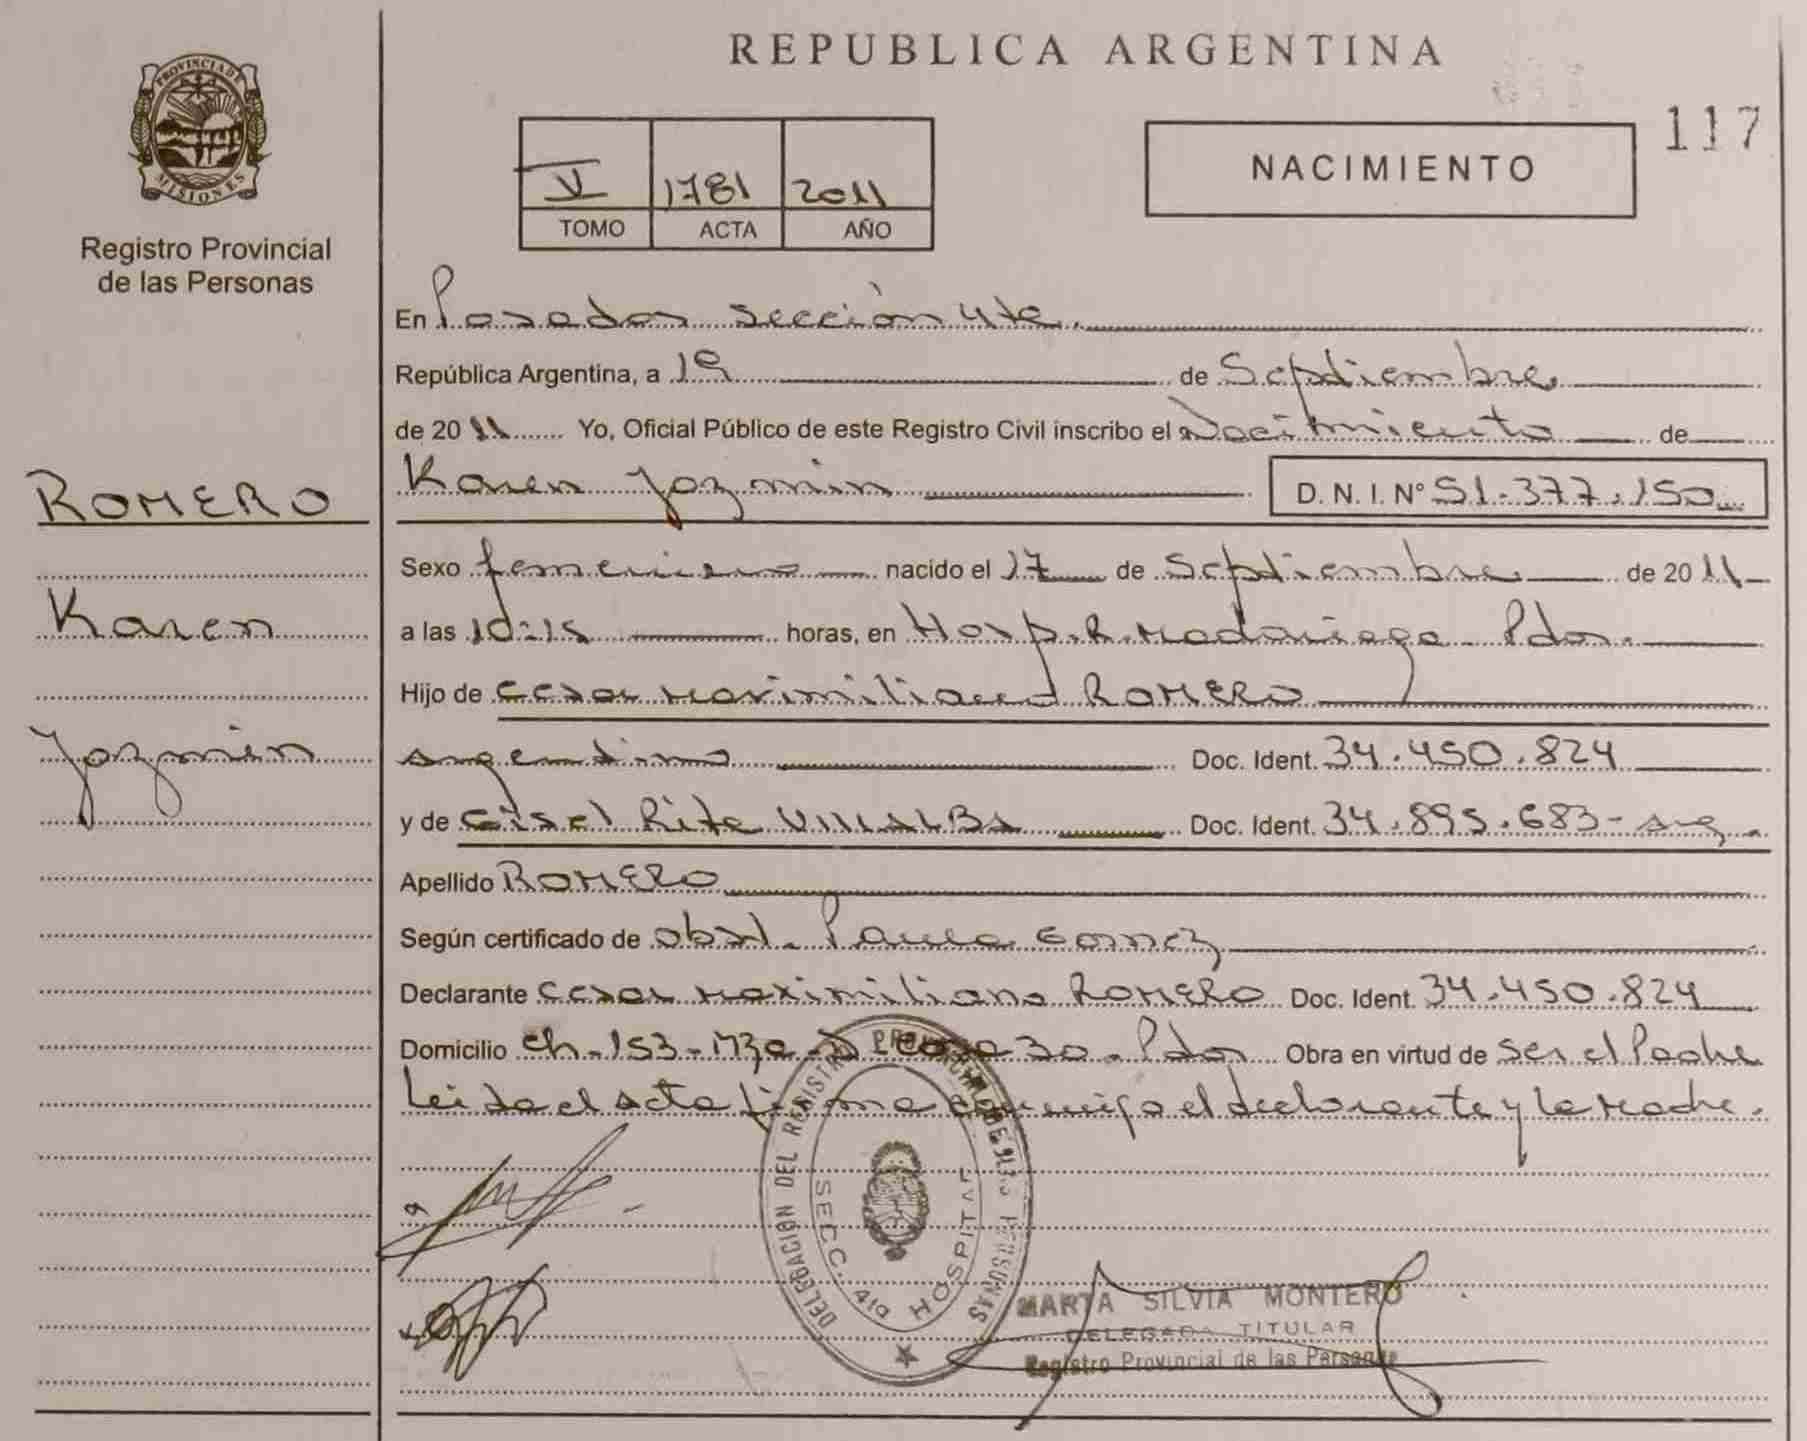 REPUBLICA ARGENTINA
117
PROVINCIA DE MISIONES
Registro Provincial
de las Personas
V 1781 2011
TOMO ACTA AÑO
NACIMIENTO
En Posadas sección 4ta.
República Argentina, a 19 de Septiembre
de 2011 Yo, Oficial Público de este Registro Civil inscribo el Nacimiento de
Karen Yazmin D. N. I. N° 51.377.150
ROMERO
Karen
Yazmin
Sexo femenino nacido el 17 de Septiembre de 2011
a las 10:15 horas, en Hosp. R. Madariaga - Pdas.
Hijo de Cesar Maximiliano ROMERO
argentino Doc. Ident. 34.450.824
y de Gisel Rita VILLALBA Doc. Ident. 34.895.683 - arg.
Apellido ROMERO
Según certificado de obst. Paula Gomez
Declarante Cesar Maximiliano ROMERO Doc. Ident. 34.450.824
Domicilio Ch-153- casa 30 - Pdas Obra en virtud de ser el Padre
Leida el acta firma conmigo el declarante y la madre.
DELEGACION DEL REGISTRO PROVINCIAL DE LAS PERSONAS
SECC. 4ta HOSPITAL
MARTA SILVIA MONTERO
DELEGADA TITULAR
Registro Provincial de las Personas